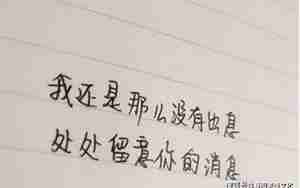 我还是那么没有出息
处处留意你的消息